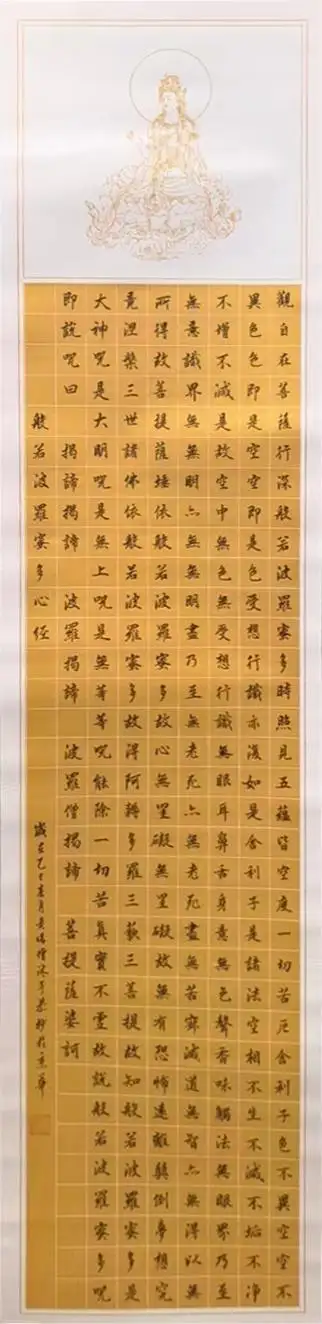 觀自在菩薩行深般若波羅蜜多時照見五蘊皆空度一切苦厄舍利子色不異空空不
異色色即是空空即是色受想行識亦復如是舍利子是諸法空相不生不滅不垢不淨
不增不減是故空中無色無受想行識無眼耳鼻舌身意無色聲香味觸法無眼界乃至
無意識界無無明亦無無明盡乃至無老死亦無老死盡無苦寂滅道無智亦無得以無
所得故菩提薩埵依般若波羅蜜多故心無罣礙無罣礙故無有恐怖遠離顛倒夢想究
竟涅槃三世諸佛依般若波羅蜜多故得阿耨多羅三藐三菩提故知般若波羅蜜多是
大神咒是大明咒是無上咒是無等等咒能除一切苦真實不虛故說般若波羅蜜多呪
即說呪曰 揭諦揭諦 波羅揭諦 波羅僧揭諦 菩提薩婆訶
般若波羅蜜多心經
歲在乙